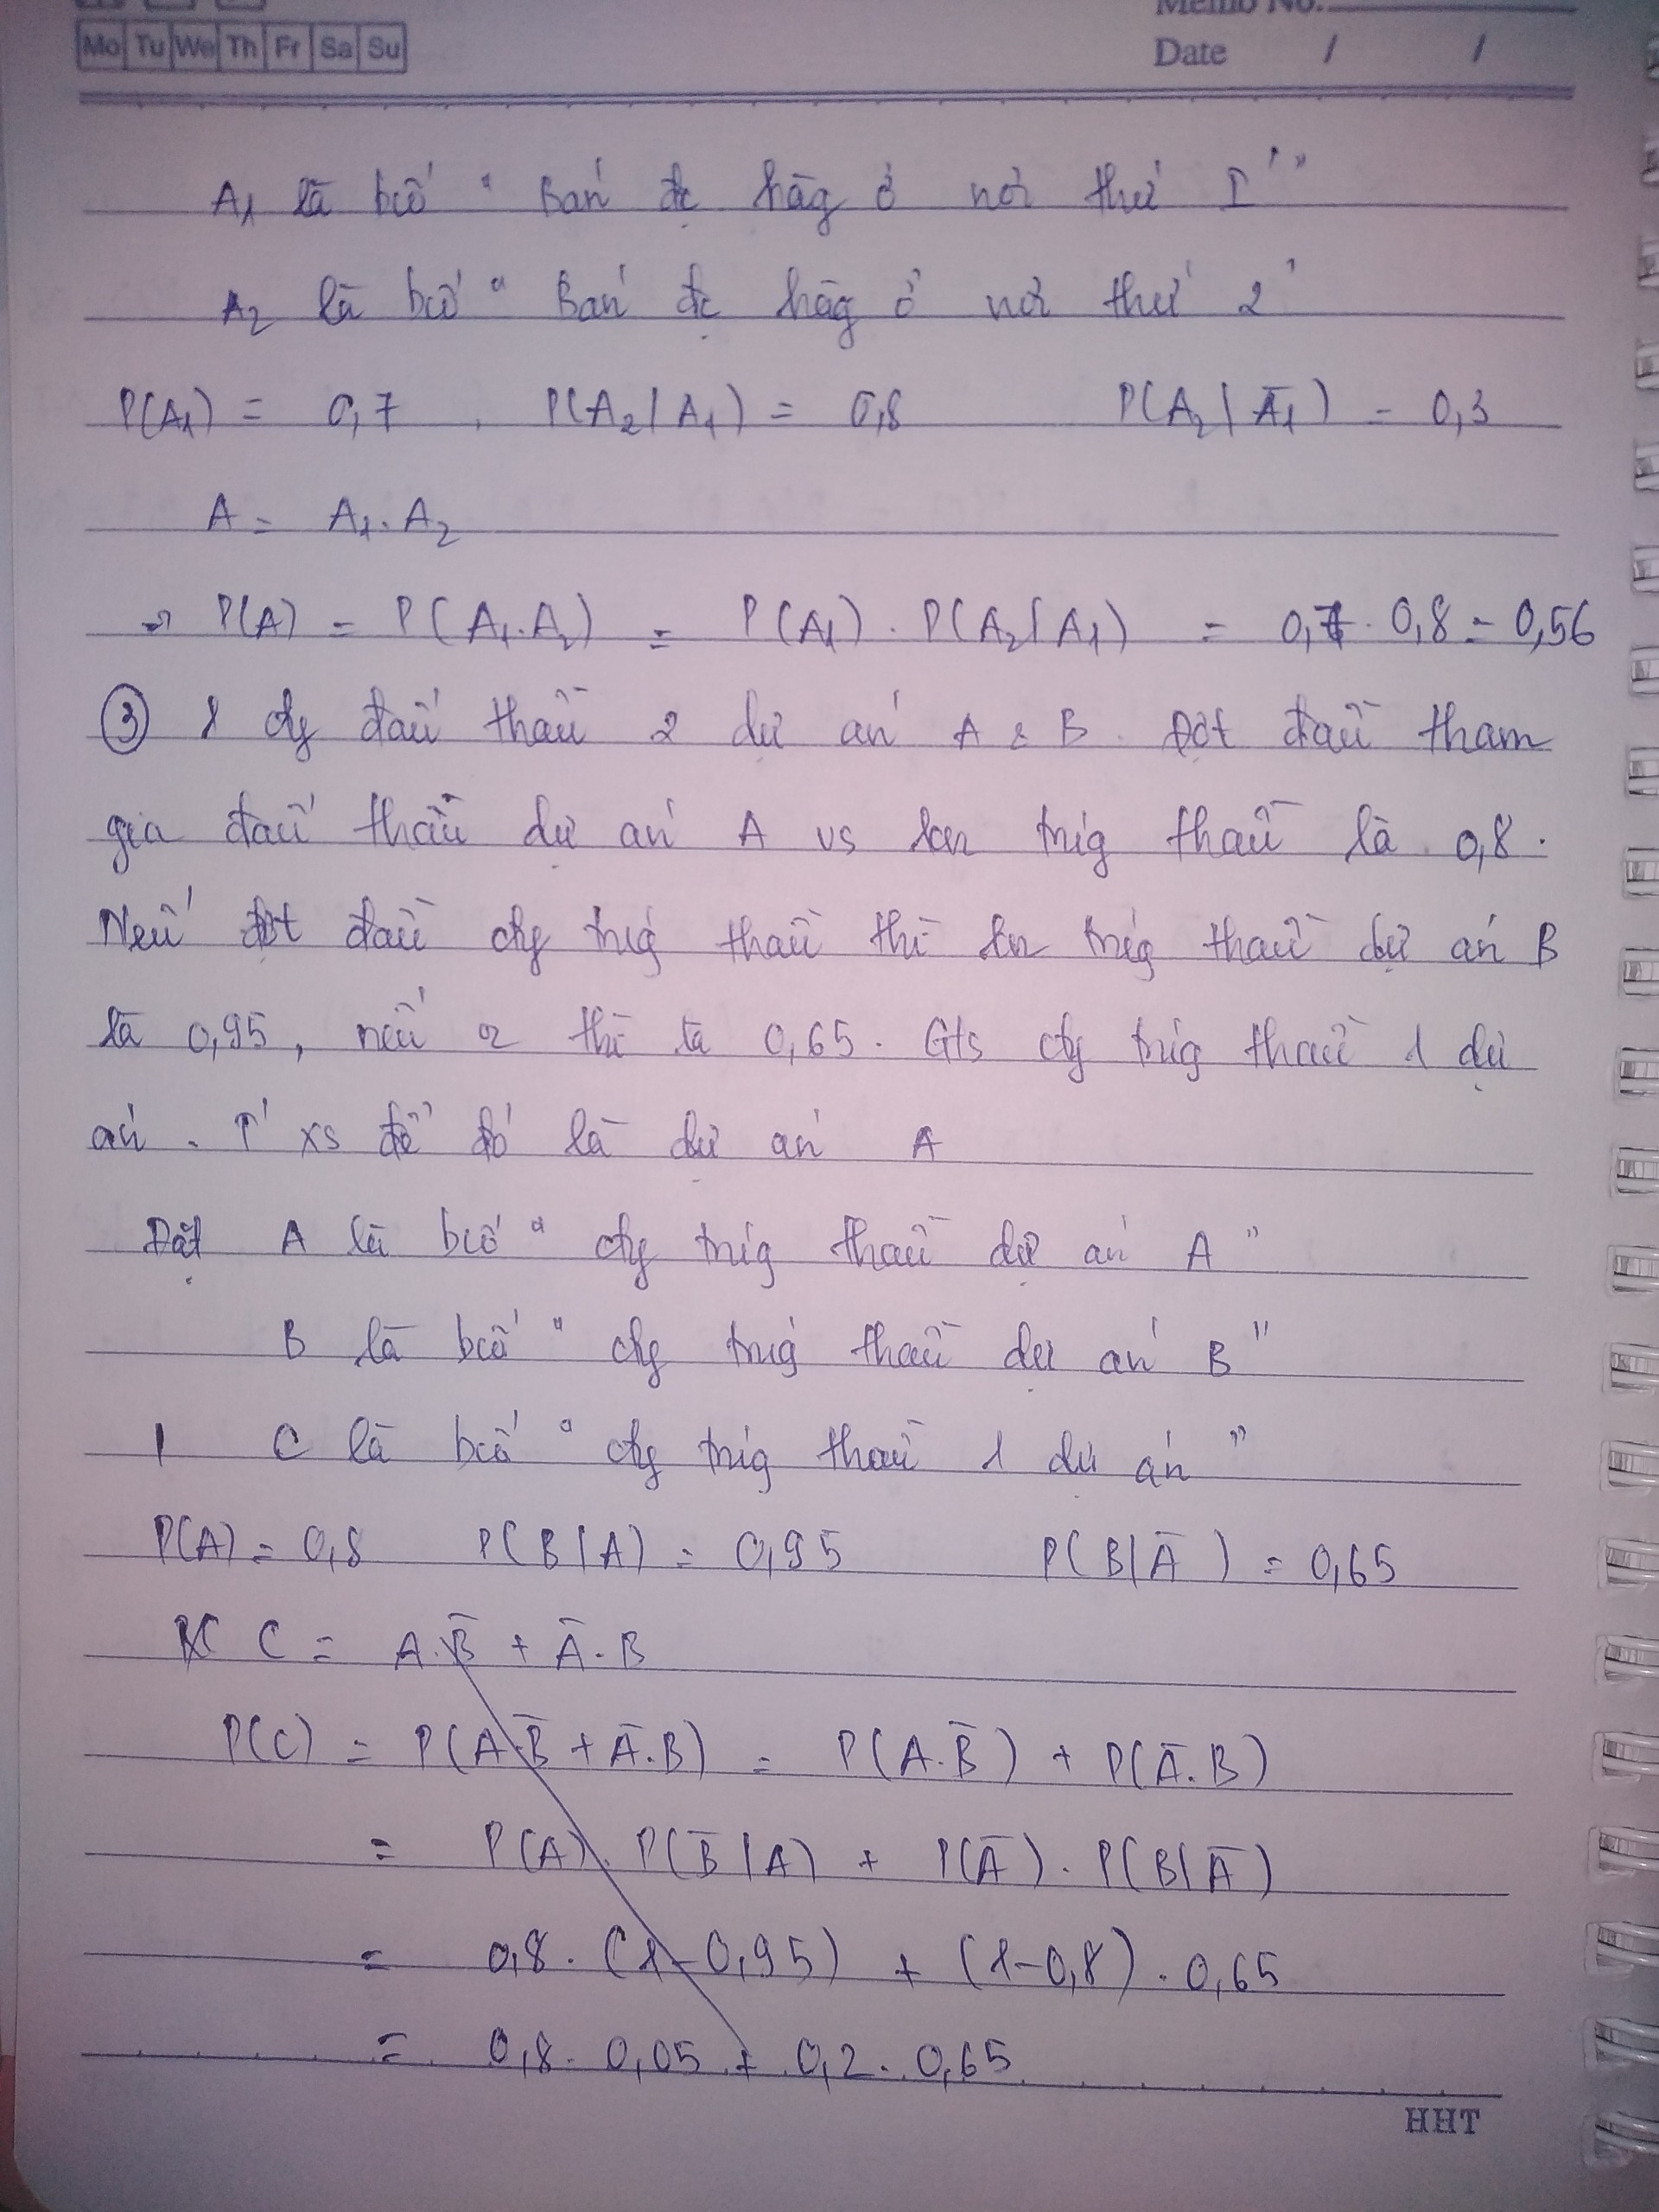 Memo No.
Mo Tu We Th Fr Sa Su
Date / /
A₁ là bcố " Bán đc hàg ở nơi thứ I "
A₂ là bcố " Bán đc hàg ở nơi thứ 2 '
P(A₁) = 0,7 , P(A₂|A₁) = 0,8 P(A₂|Ā₁) = 0,3
A = A₁.A₂
⇒ P(A) = P(A₁.A₂) = P(A₁).P(A₂|A₁) = 0,7.0,8 = 0,56
③ 1 cty đấu thầu 2 dự án A & B. Đợt đầu tham
gia đấu thầu dự án A vs trúg thầu là 0,8.
Nếu đợt đầu cty trúg thầu thì trúg thầu dự án B
là 0,95, nếu thì là 0,65. Gts cty trúg thầu 1 dự
án. T' xs để đó là dự án A
Đặt A là bcố " cty trúg thầu dự án A "
B là bcố " cty trúg thầu dự án B "
C là bcố " cty trúg thầu 1 dự án "
P(A) = 0,8 P(B|A) = 0,95 P(B|Ā) = 0,65
C = A.B̄ + Ā.B
P(C) = P(A.B̄ + Ā.B) = P(A.B̄) + P(Ā.B)
= P(A).P(B̄|A) + P(Ā).P(B|Ā)
= 0,8.(1-0,95) + (1-0,8).0,65
= 0,8.0,05 + 0,2.0,65
HHT